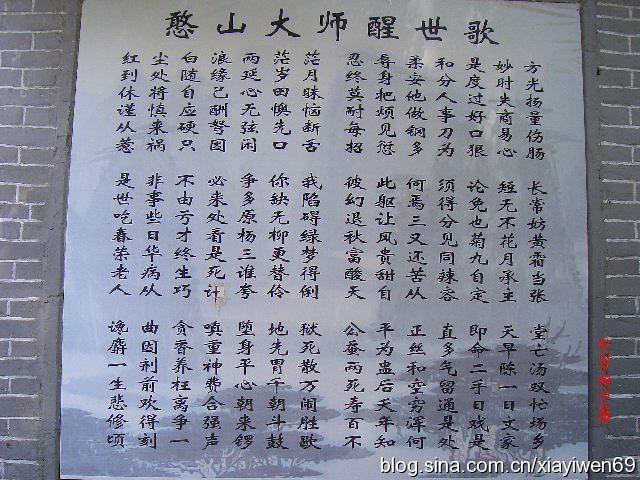 憨山大师醒世歌
红尘白浪两茫茫 忍辱柔和是妙方
到处随缘延岁月 终身安分度时光
休将自己心田昧 莫把他人过失扬
谨慎应酬无懊恼 耐烦做事好商量
从来硬弩弦先断 每见钢刀口易伤
惹祸只因闲口舌 招愆多为狠心肠
是非不必争你我 彼此何须论短长
世事由来多缺陷 幻躯焉得免无常
吃些亏处原无碍 退让三分也不妨
春日才看杨柳绿 秋风又见菊花黄
荣华终是三更梦 富贵还同九月霜
老病生死谁替得 酸甜苦辣自承当
人从巧计夸伶俐 天自从容定主张
谄曲贪嗔堕地狱 公平正直即天堂
麝因香重身先死 蚕为丝多命早亡
一剂养神平胃散 两盅和气二陈汤
生前枉费心千万 死后空留手一双
悲欢离合朝朝闹 寿天穷通日日忙
修得争强来斗胜 百年浑是戏文场
顷刻一声锣鼓歇 不知何处是家乡
blog.sina.com.cn/xiayiwen69